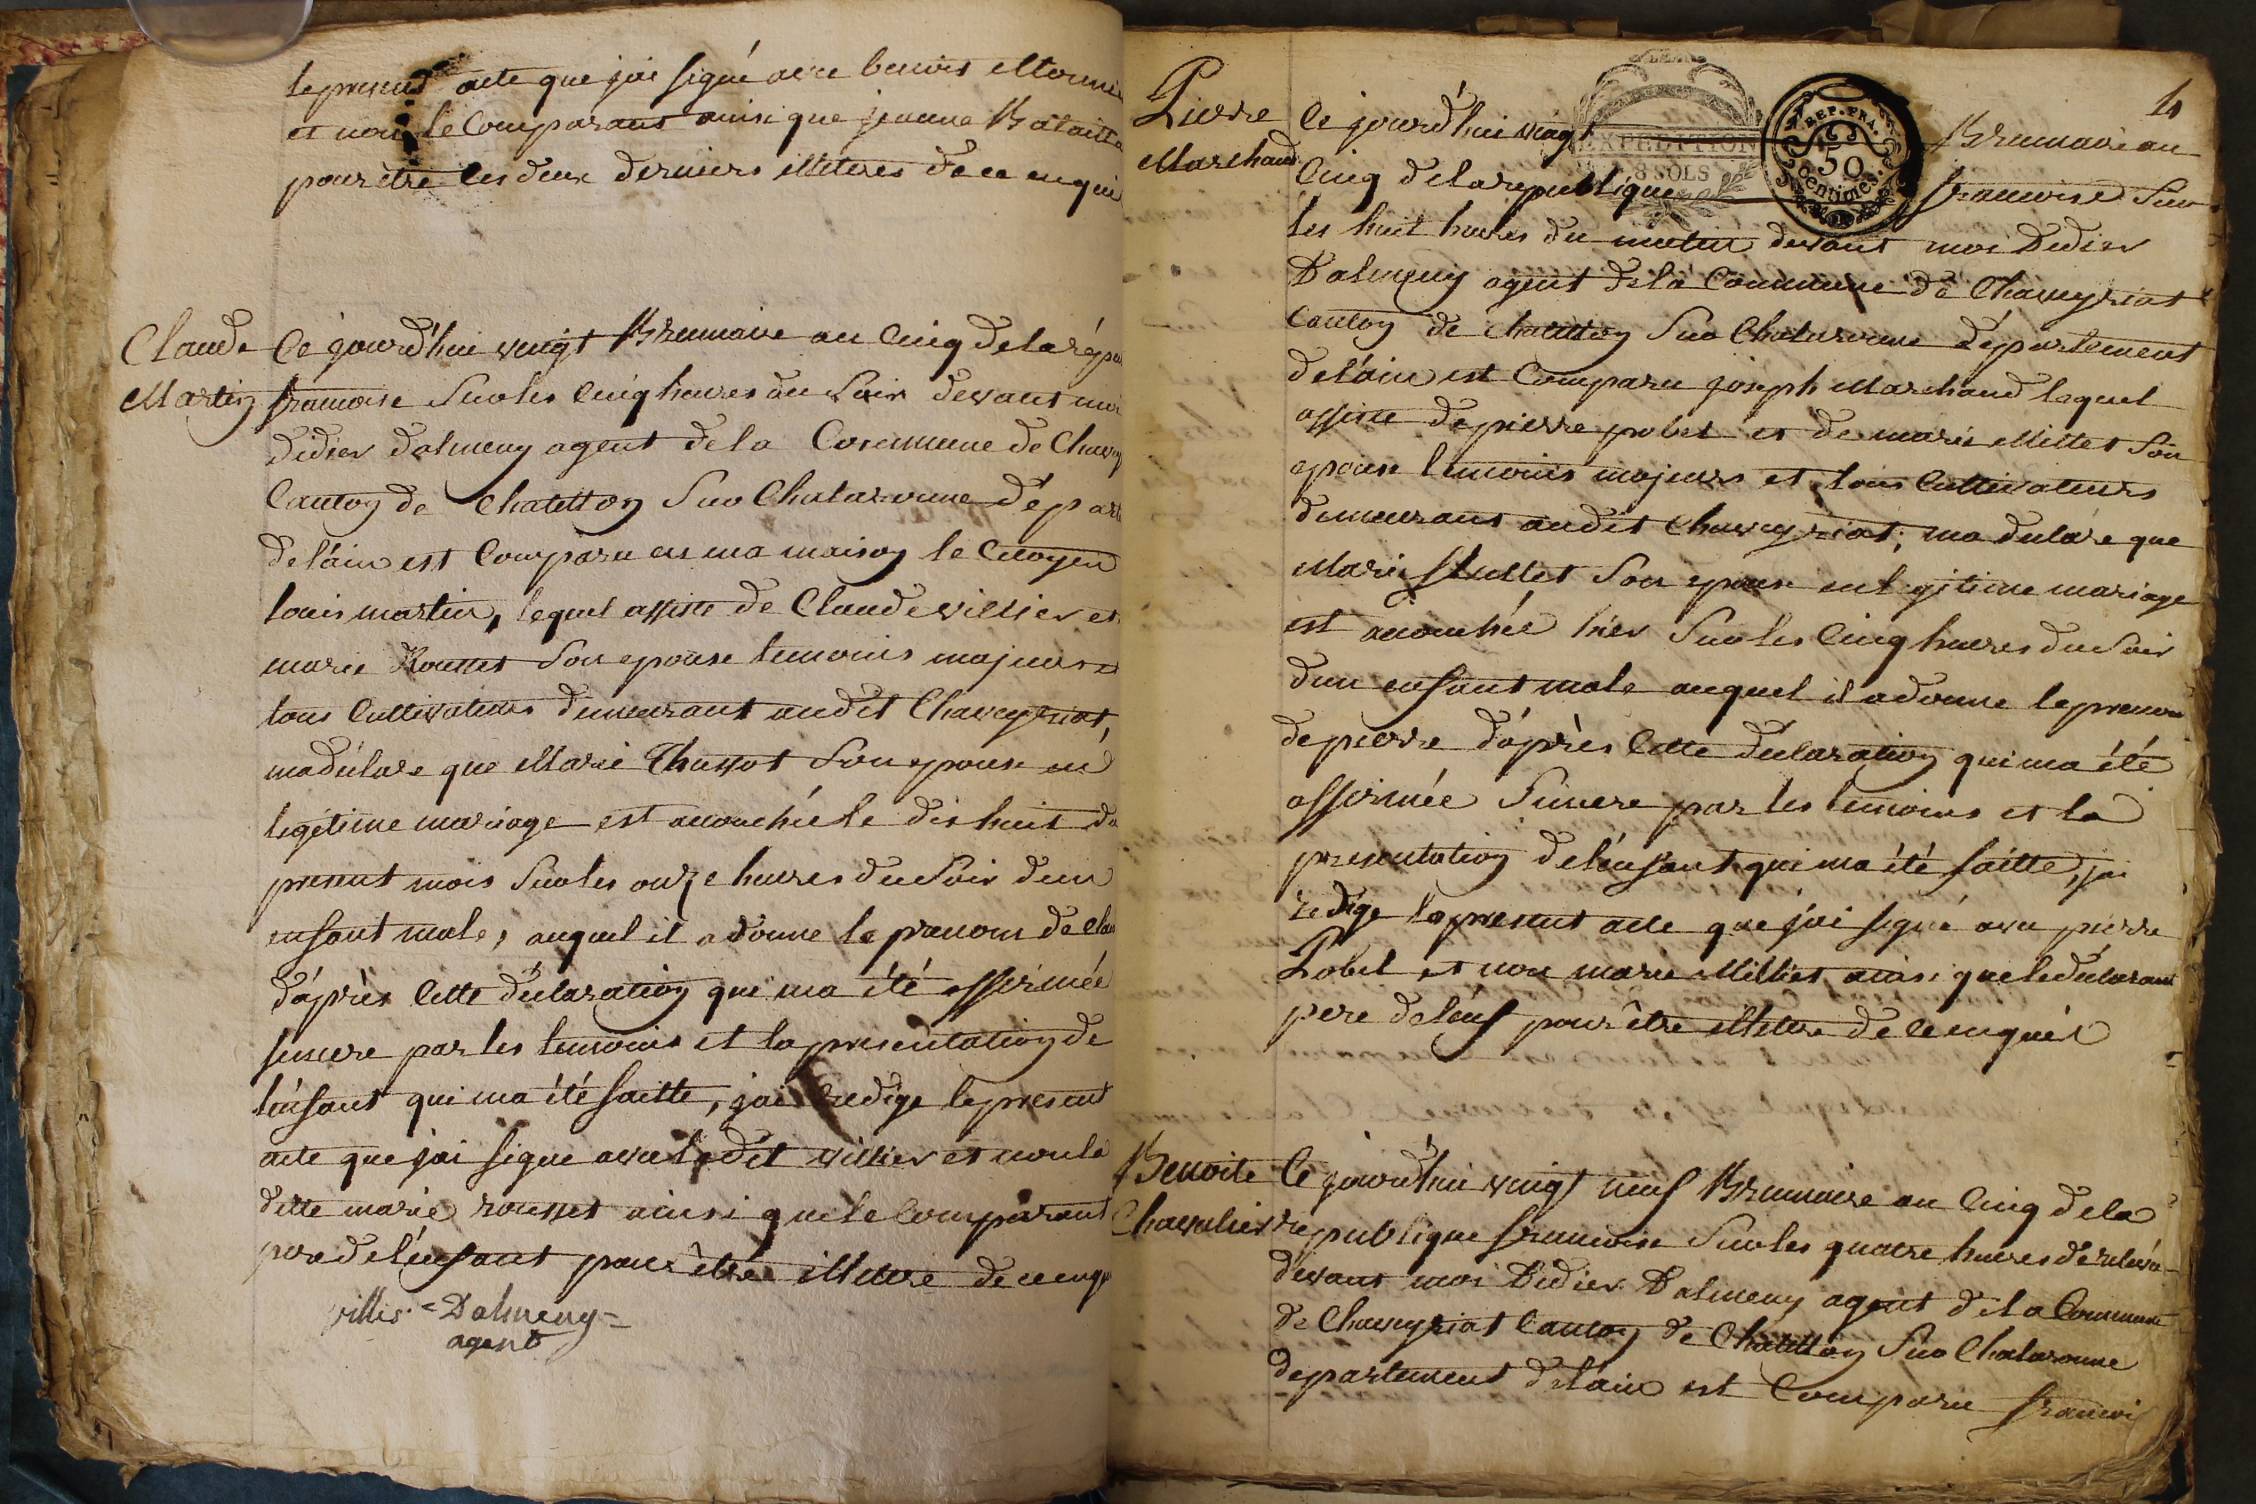 le present acte que jai signé avec benoit
et non le Comparant ainsi que jeanne
pour être les deux derniers illeteres de ce enquis
Claude
Martin
Ce jourd'hui vingt Brumaire an Cinq de la répu
francoise Sur les Cinq heures du Soir devant moi
didier dalmeny agent de la Commune de Chavey
Canton de Chatillon Sur Chalaronne départ
de l'ain est Comparu en ma maison le Citoyen
louis martin, lequel assisté de Claude villier et
marie Rousset Son epouse temoins majeurs et
tous Cultivateurs demeurant audit Chaveyriat,
ma déclare que Marie Son epouse en
legitime mariage est accouchée le dix huit du
present mois Sur les onze heures du Soir d'un
enfant male, auquel il a donne le prenom de Clau
d'aprèr Cette déclaration qui ma été affirmée
sincere par les temoins et la presentation de
l'énfant qui ma été faitte, jai redige le present
acte que jai signe avec ledit villier et non la
dette marie rousset ainsi que le Comparant
pere de l'énfant pour être illetere de ce enqui
villie = Dalmeny =
agent
4
Pierre
Marchand
EXPEDITION
8 SOLS
REP. FRA.
50
Centimes.
Ce jourd'hui vingt Brumaire an
Cinq de la republique francoise Sur
les huit heures du matin devant moi Didier
Dalmeny agent de la Commune de Chaveyriat
Canton de Chatillon Sur Chalaronne département
de l'ain est Comparu joseph Marchand lequel
assisté de pierre pobel et de marie Millet Son
epouse temoins majeurs et tous Cultivateurs
demeurant audit Chaveyriat, ma declare que
Marie Son epouse en legitime mariage
est accouchée hier Sur les Cinq heures du Soir
d'un enfant male auquel il a donne le prenom
de pierre d'áprès Cette déclaration qui ma été
affirmée Sincere par les temoins et la
presentation de l'énfant qui ma été faitte, jai
redige le present acte que j'ai signé avec pierre
Pobel et non marie Milliet ainsi que le déclarant
pere de l'énf pour être illetere de ce enquis
Benoite
Chavalier
Ce jourd'hui vingt neuf Brumaire an Cinq de la
republique francoise Sur les quatre heures de releve
devant moi Didier Dalmeny agent de la Commune
de Chaveyriat Canton de Chatillon Sur Chalaronne
departement de l'ain est Comparu francoi